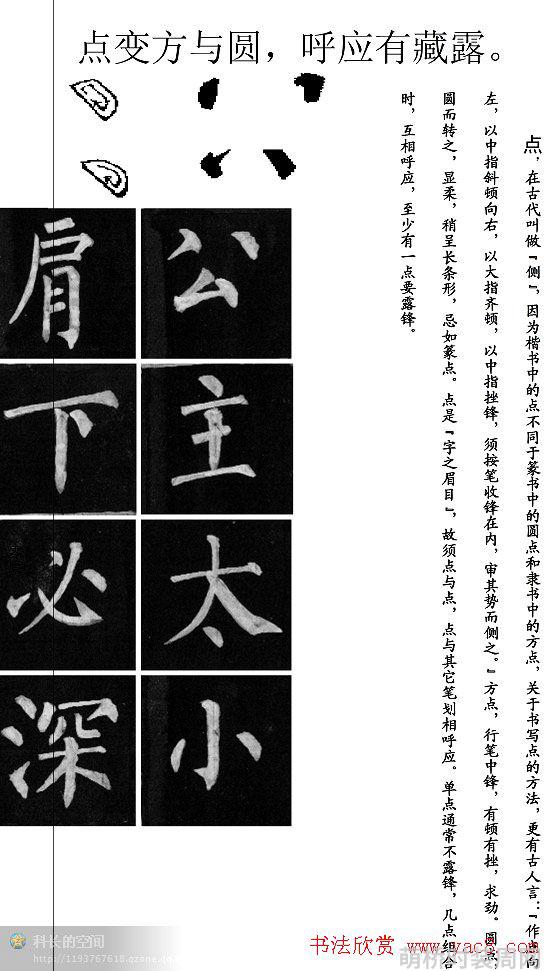 点变方与圆，呼应有藏露。
点，在古代叫做『侧』，因为楷书中的点不同于篆书中的圆点和隶书中的方点，关于书写点的方法，更有古人言：『作点向
左，以中指斜顿向右，以大指齐顿，以中指挫锋，须按笔收锋在内，审其势而侧之。』方点，行笔中锋，有顿有挫，求劲。圆点
圆而转之，显柔，稍呈长条形，忌如篆点。点是『字之眉目』，故须点与点，点与其它笔划相呼应。单点通常不露锋，几点组合
时，互相呼应，至少有一点要露锋。
公
主
太
小
肩
下
必
深
科长的空间
http://1193767618.qzone.qq.com
书法欣赏 www.yac8.com